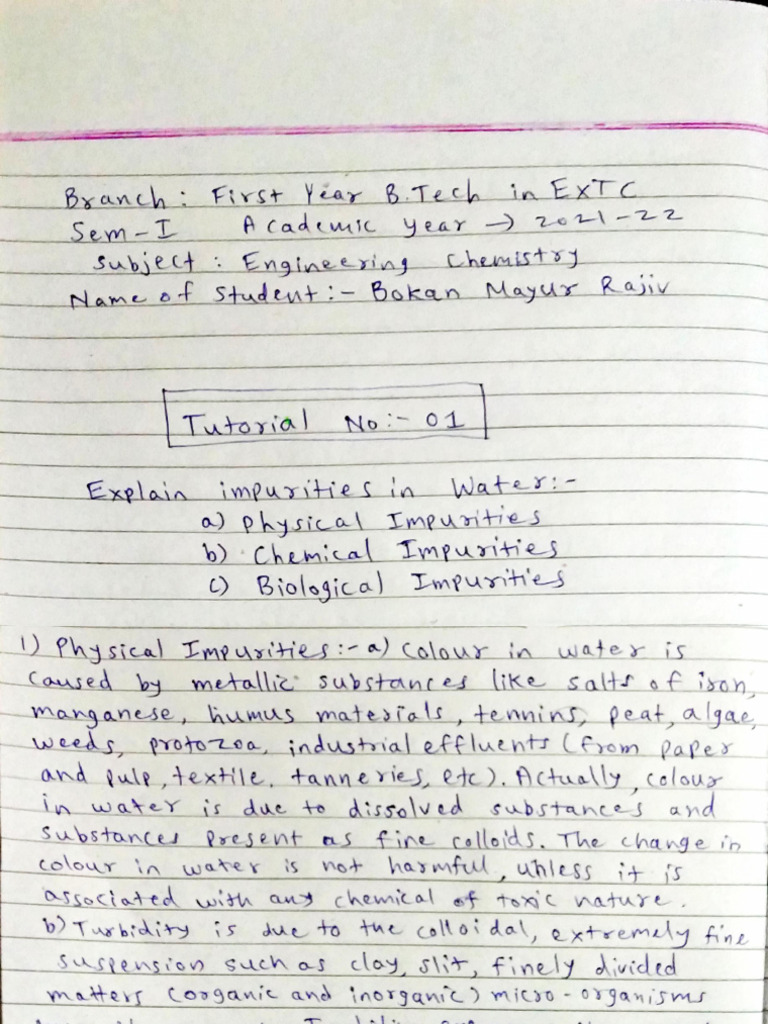 Branch : First Year B.Tech in EXTC
Sem-I Academic year → 2021-22
Subject : Engineering Chemistry
Name of Student :- Bokan Mayur Rajiv
Tutorial No:- 01
Explain impurities in Water:-
a) Physical Impurities
b) Chemical Impurities
c) Biological Impurities
1) Physical Impurities:- a) Colour in water is
caused by metallic substances like salts of iron,
manganese, humus materials, tennins, peat, algae,
weeds, protozoa, industrial effluents (from paper
and pulp, textile, tanneries, etc). Actually, colour
in water is due to dissolved substances and
substances present as fine colloids. The change in
colour in water is not harmful, unless it is
associated with any chemical of toxic nature.
b) Turbidity is due to the colloidal, extremely fine
suspension such as clay, slit, finely divided
matters (organic and inorganic) micro-organisms